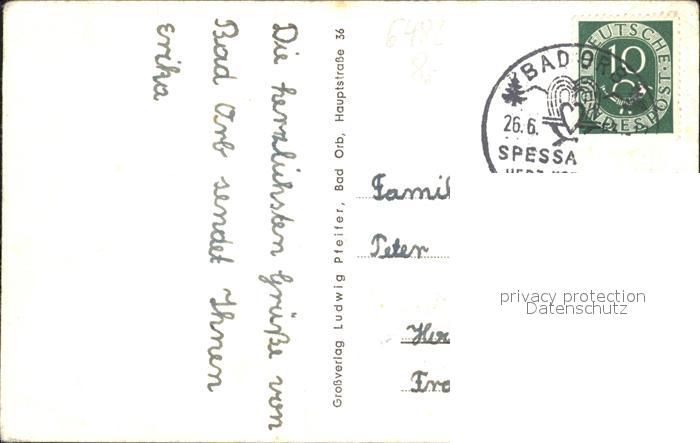 Die herzlichsten Grüße von
Bad Orb sendet Ihnen
Erika
Großverlag Ludwig Pfeifer, Bad Orb, Hauptstraße 36
6482
8,-
DEUTSCHE
10
BUNDESPOST
BAD ORB
26.6.
SPESSA
Famil
Peter
Her
Fra
privacy protection
Datenschutz